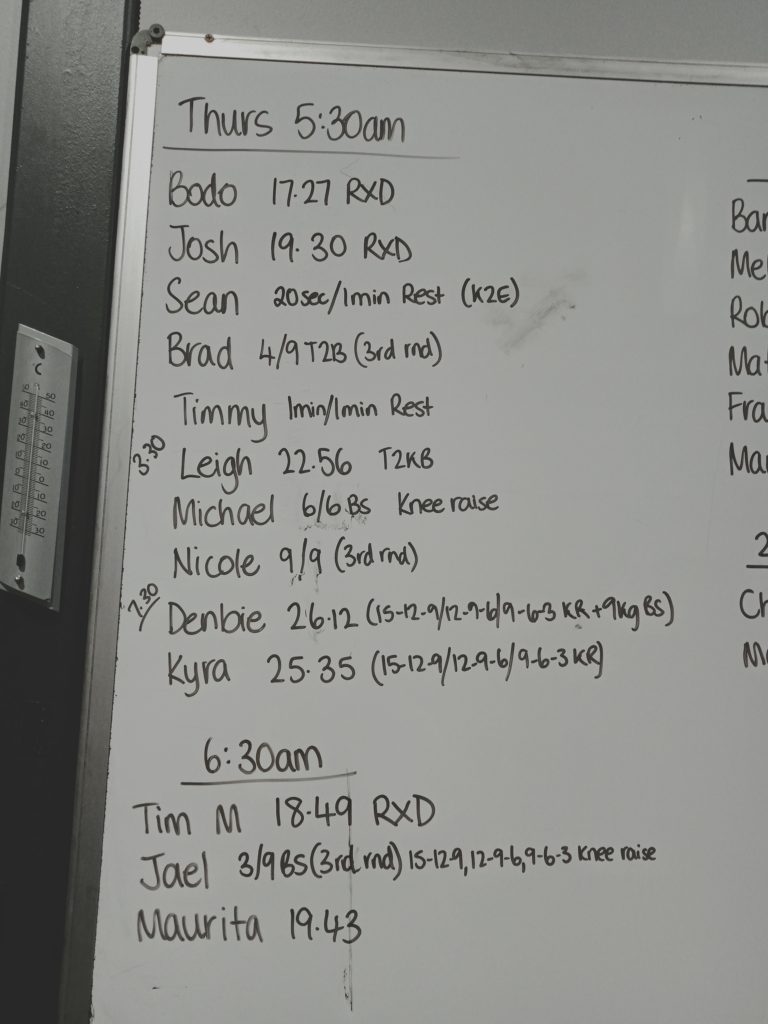 Thurs 5:30am
Bodo 17.27 RXD
Josh 19.30 RXD
Sean 20sec/1min Rest (K2E)
Brad 4/9 T2B (3rd rnd)
Timmy 1min/1min Rest
3.30 Leigh 22.56 T2KB
Michael 6/6 BS Knee raise
Nicole 9/9 (3rd rnd)
7.30 Denbie 26.12 (15-12-9/12-9-6/9-6-3 KR + 9kg BS)
Kyra 25.35 (15-12-9/12-9-6/9-6-3 KR)
6:30am
Tim M 18.49 RXD
Jael 3/9 BS (3rd rnd) 15-12-9, 12-9-6, 9-6-3 Knee raise
Maurita 19.43
Bar
Me
Rob
Mat
Fra
Mar
2
Ch
M